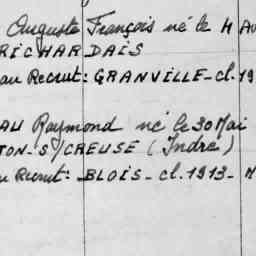 Auguste François né le 4 A
RICHARDAIS
au Recrut: GRANVILLE - cl. 19
AU Raymond né le 30 Mai
TON-S/CREUSE (Indre)
Recrut: BLOIS - cl. 1913 -